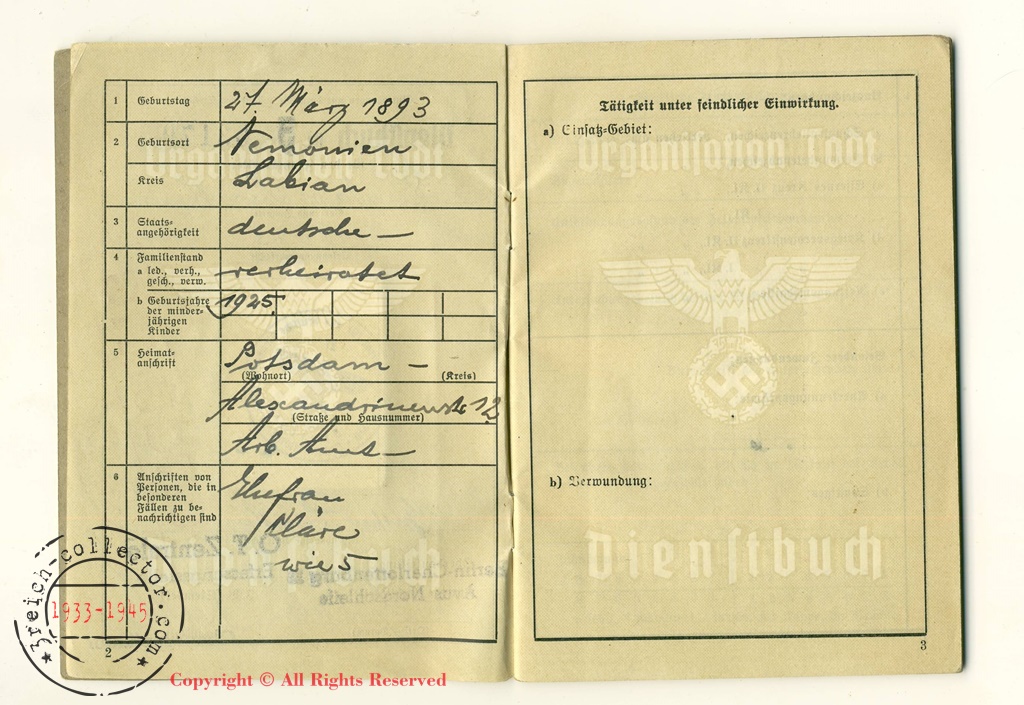 1 Geburtstag 27. März 1893
2 Geburtsort Nemonien
Kreis Labiau
3 Staats-
angehörigkeit deutsche —
4 Familienstand
a led., verh.,
gesch., verw. verheiratet
b Geburtsjahre
der minder-
jährigen
Kinder 1925.
5 Heimat-
anschrift Potsdam —
(Wohnort) (Kreis)
Alexandrinenstr 12
(Straße und Hausnummer)
Arb. Amt —
6 Anschriften von
Personen, die in
besonderen
Fällen zu be-
nachrichtigen sind
Ehefrau
Kläre
wie 5
2
Tätigkeit unter feindlicher Einwirkung.
a) Einsatz-Gebiet:
Organisation Todt
b) Verwundung:
Dienstbuch
3
O.T. Zentrale
Berlin-Charlottenburg 9
3reich-collector.com
1933-1945
Copyright © All Rights Reserved